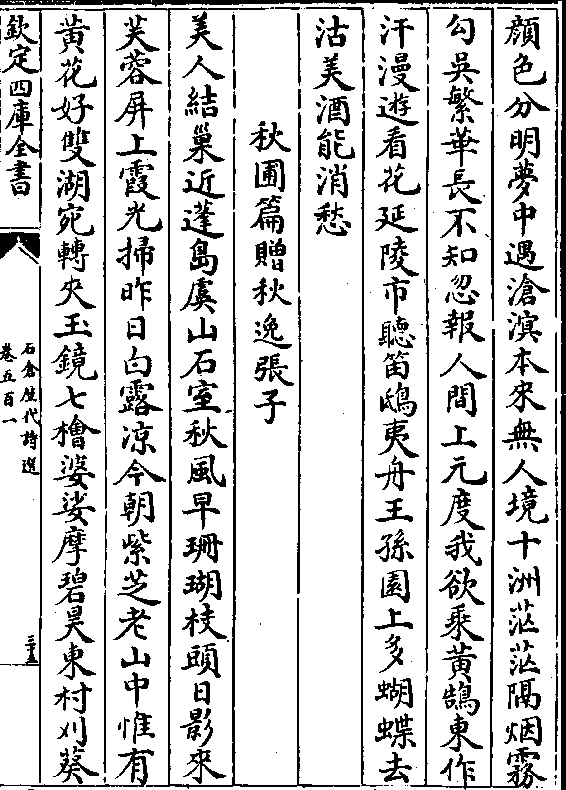 顔色分明夢中遇滄溟本來無人境十洲茫茫隔烟霧
勾吳繁華長不知忽報人間上元度我欲乘黃鵠東作
汗漫遊看花延陵市聽笛鴟夷舟王孫園上多蝴蝶去
沽美酒能消愁
秋圃篇贈秋逸張子
美人結巢近蓬島虞山石室秋風早珊瑚枝頭日影來
芙蓉屏上霞光掃昨日白露凉今朝紫芝老山中惟有
黃花好雙湖宛轉夾玉鏡七檜婆娑摩碧昊東村刈葵
欽定四庫全書
石倉歷代詩選
卷五百一
三十五